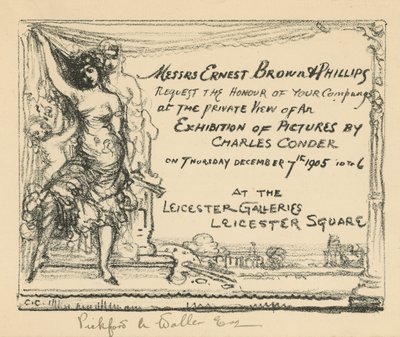 MESSRS ERNEST BROWN & PHILLIPS
REQUEST THE HONOUR OF YOUR Company
at THE PRIVATE VIEW of An
EXHIBITION OF PICTURES BY
CHARLES CONDER
ON THURSDAY DECEMBER 7TH 1905 10 to 6
AT THE
LEICESTER GALLERIES
LEICESTER SQUARE
C.C.
Pickford R Waller Esq